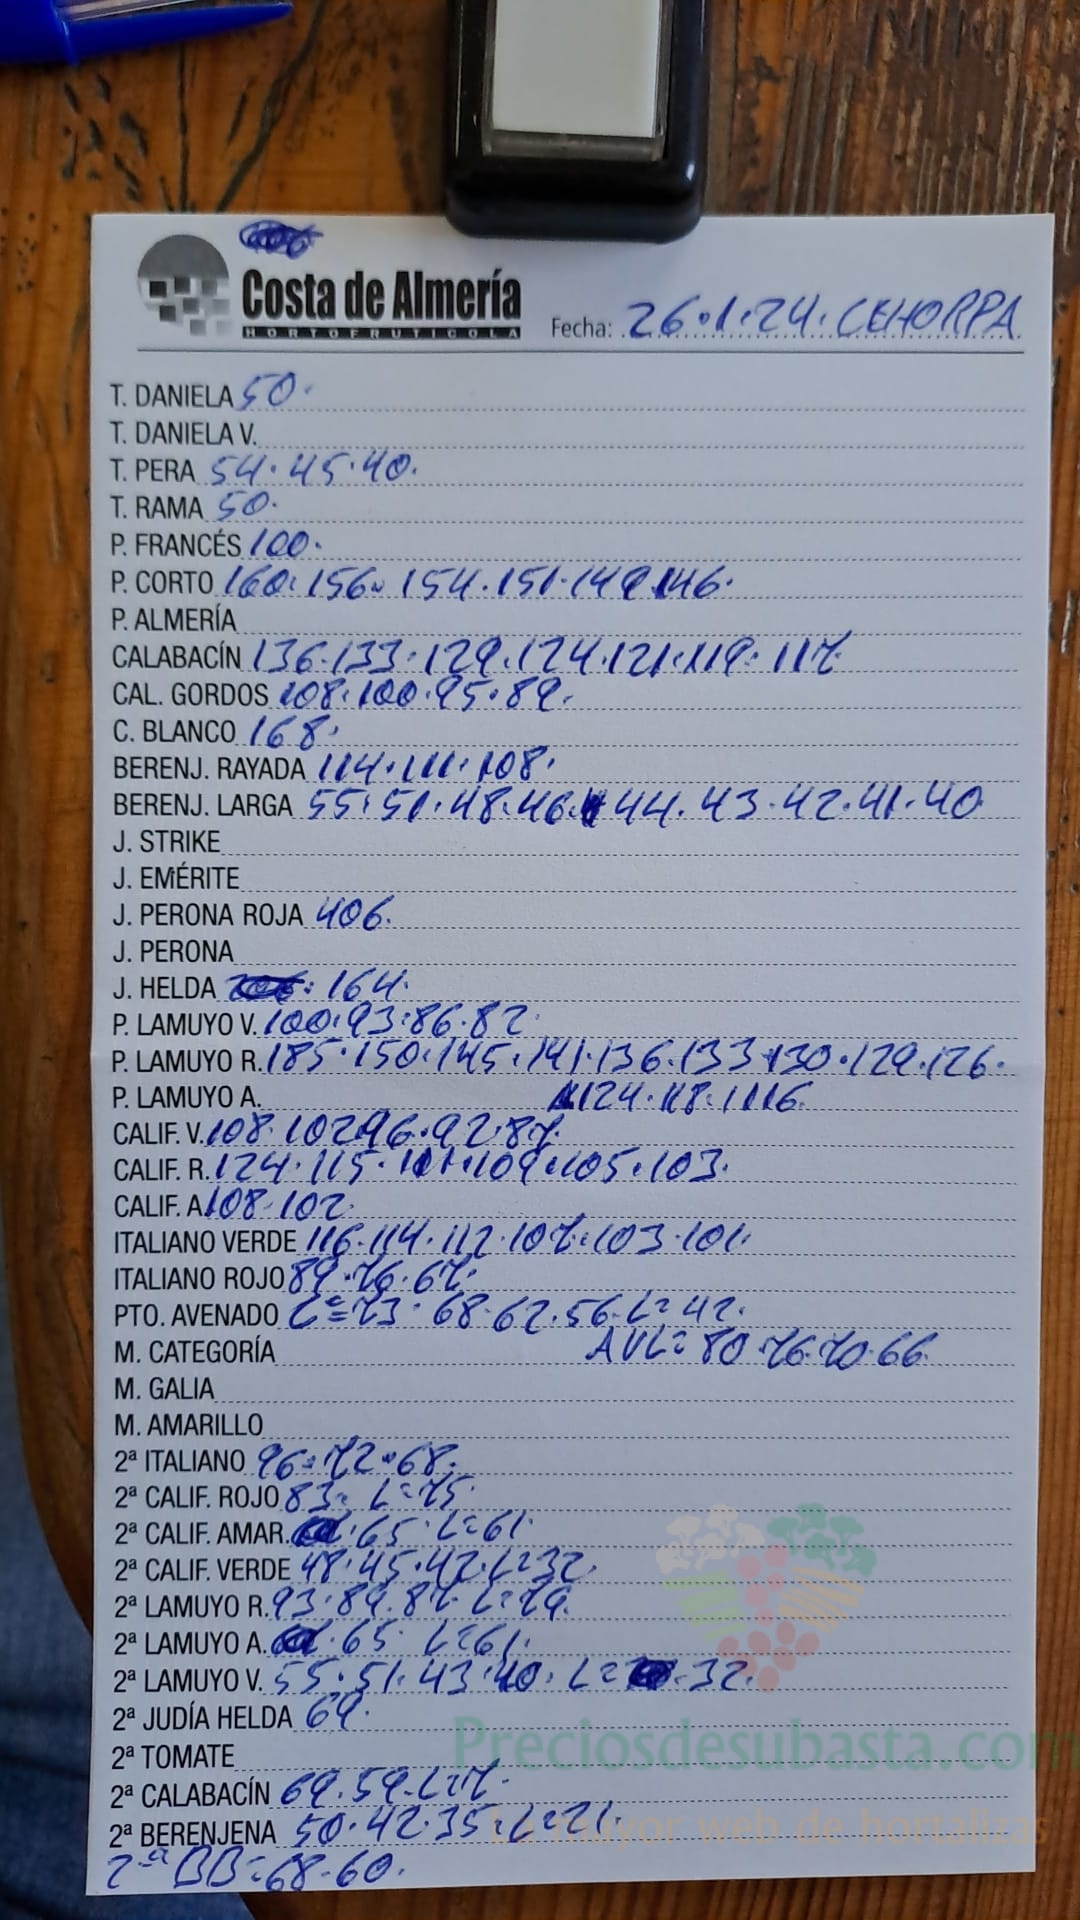 Costa de Almería
HORTOFRUTICOLA
Fecha: 26.1.24. CEHORPA
T. DANIELA 50.
T. DANIELA V.
T. PERA 54.45.40.
T. RAMA 50.
P. FRANCÉS 100.
P. CORTO 160.156.154.151.149.146.
P. ALMERÍA
CALABACÍN 136.133.129.124.121.119.117
CAL. GORDOS 108.100.95.89.
C. BLANCO 168.
BERENJ. RAYADA 114.111.108.
BERENJ. LARGA 55.51.48.46.44.43.42.41.40
J. STRIKE
J. EMÉRITE
J. PERONA ROJA 406.
J. PERONA
J. HELDA 164.
P. LAMUYO V. 100.93.86.82.
P. LAMUYO R. 185.150.145.141.136.133.130.129.126.
P. LAMUYO A. 124.118.1116.
CALIF. V. 108.102.96.92.87.
CALIF. R. 124.115.109.105.103.
CALIF. A 108.102.
ITALIANO VERDE 116.114.112.107.103.101.
ITALIANO ROJO 89.76.67.
PTO. AVENADO L=73.68.62.56.L=42.
M. CATEGORÍA AVL=80.76.70.66.
M. GALIA
M. AMARILLO
2ª ITALIANO 96.72.68.
2ª CALIF. ROJO 83. L=75.
2ª CALIF. AMAR. 65. L=61.
2ª CALIF. VERDE 48.45.42.L=32.
2ª LAMUYO R. 93.89.87. L=79.
2ª LAMUYO A. 65. L=61.
2ª LAMUYO V. 55.51.43.40. L= 32.
2ª JUDÍA HELDA 69.
2ª TOMATE
Preciosdesubasta.com
2ª CALABACÍN 69.59.L=7.
2ª BERENJENA 50.42.35.L=21.
La mayor web de hortalizas
2ª BB=68.60.